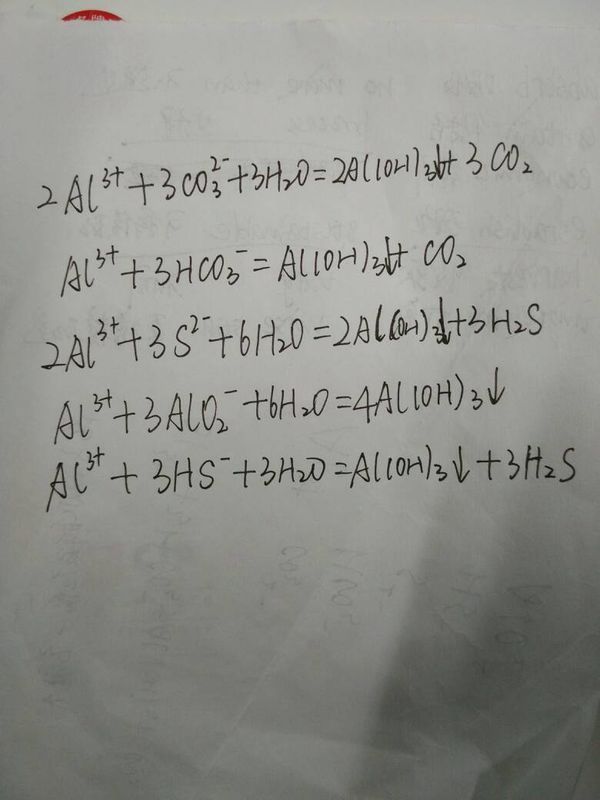 2Al³⁺ + 3CO₃²⁻ + 3H₂O = 2Al(OH)₃↓ + 3CO₂
Al³⁺ + 3HCO₃⁻ = Al(OH)₃↓ + CO₂
2Al³⁺ + 3S²⁻ + 6H₂O = 2Al(OH)₃↓ + 3H₂S
Al³⁺ + 3AlO₂⁻ + 6H₂O = 4Al(OH)₃↓
Al³⁺ + 3HS⁻ + 3H₂O = Al(OH)₃↓ + 3H₂S